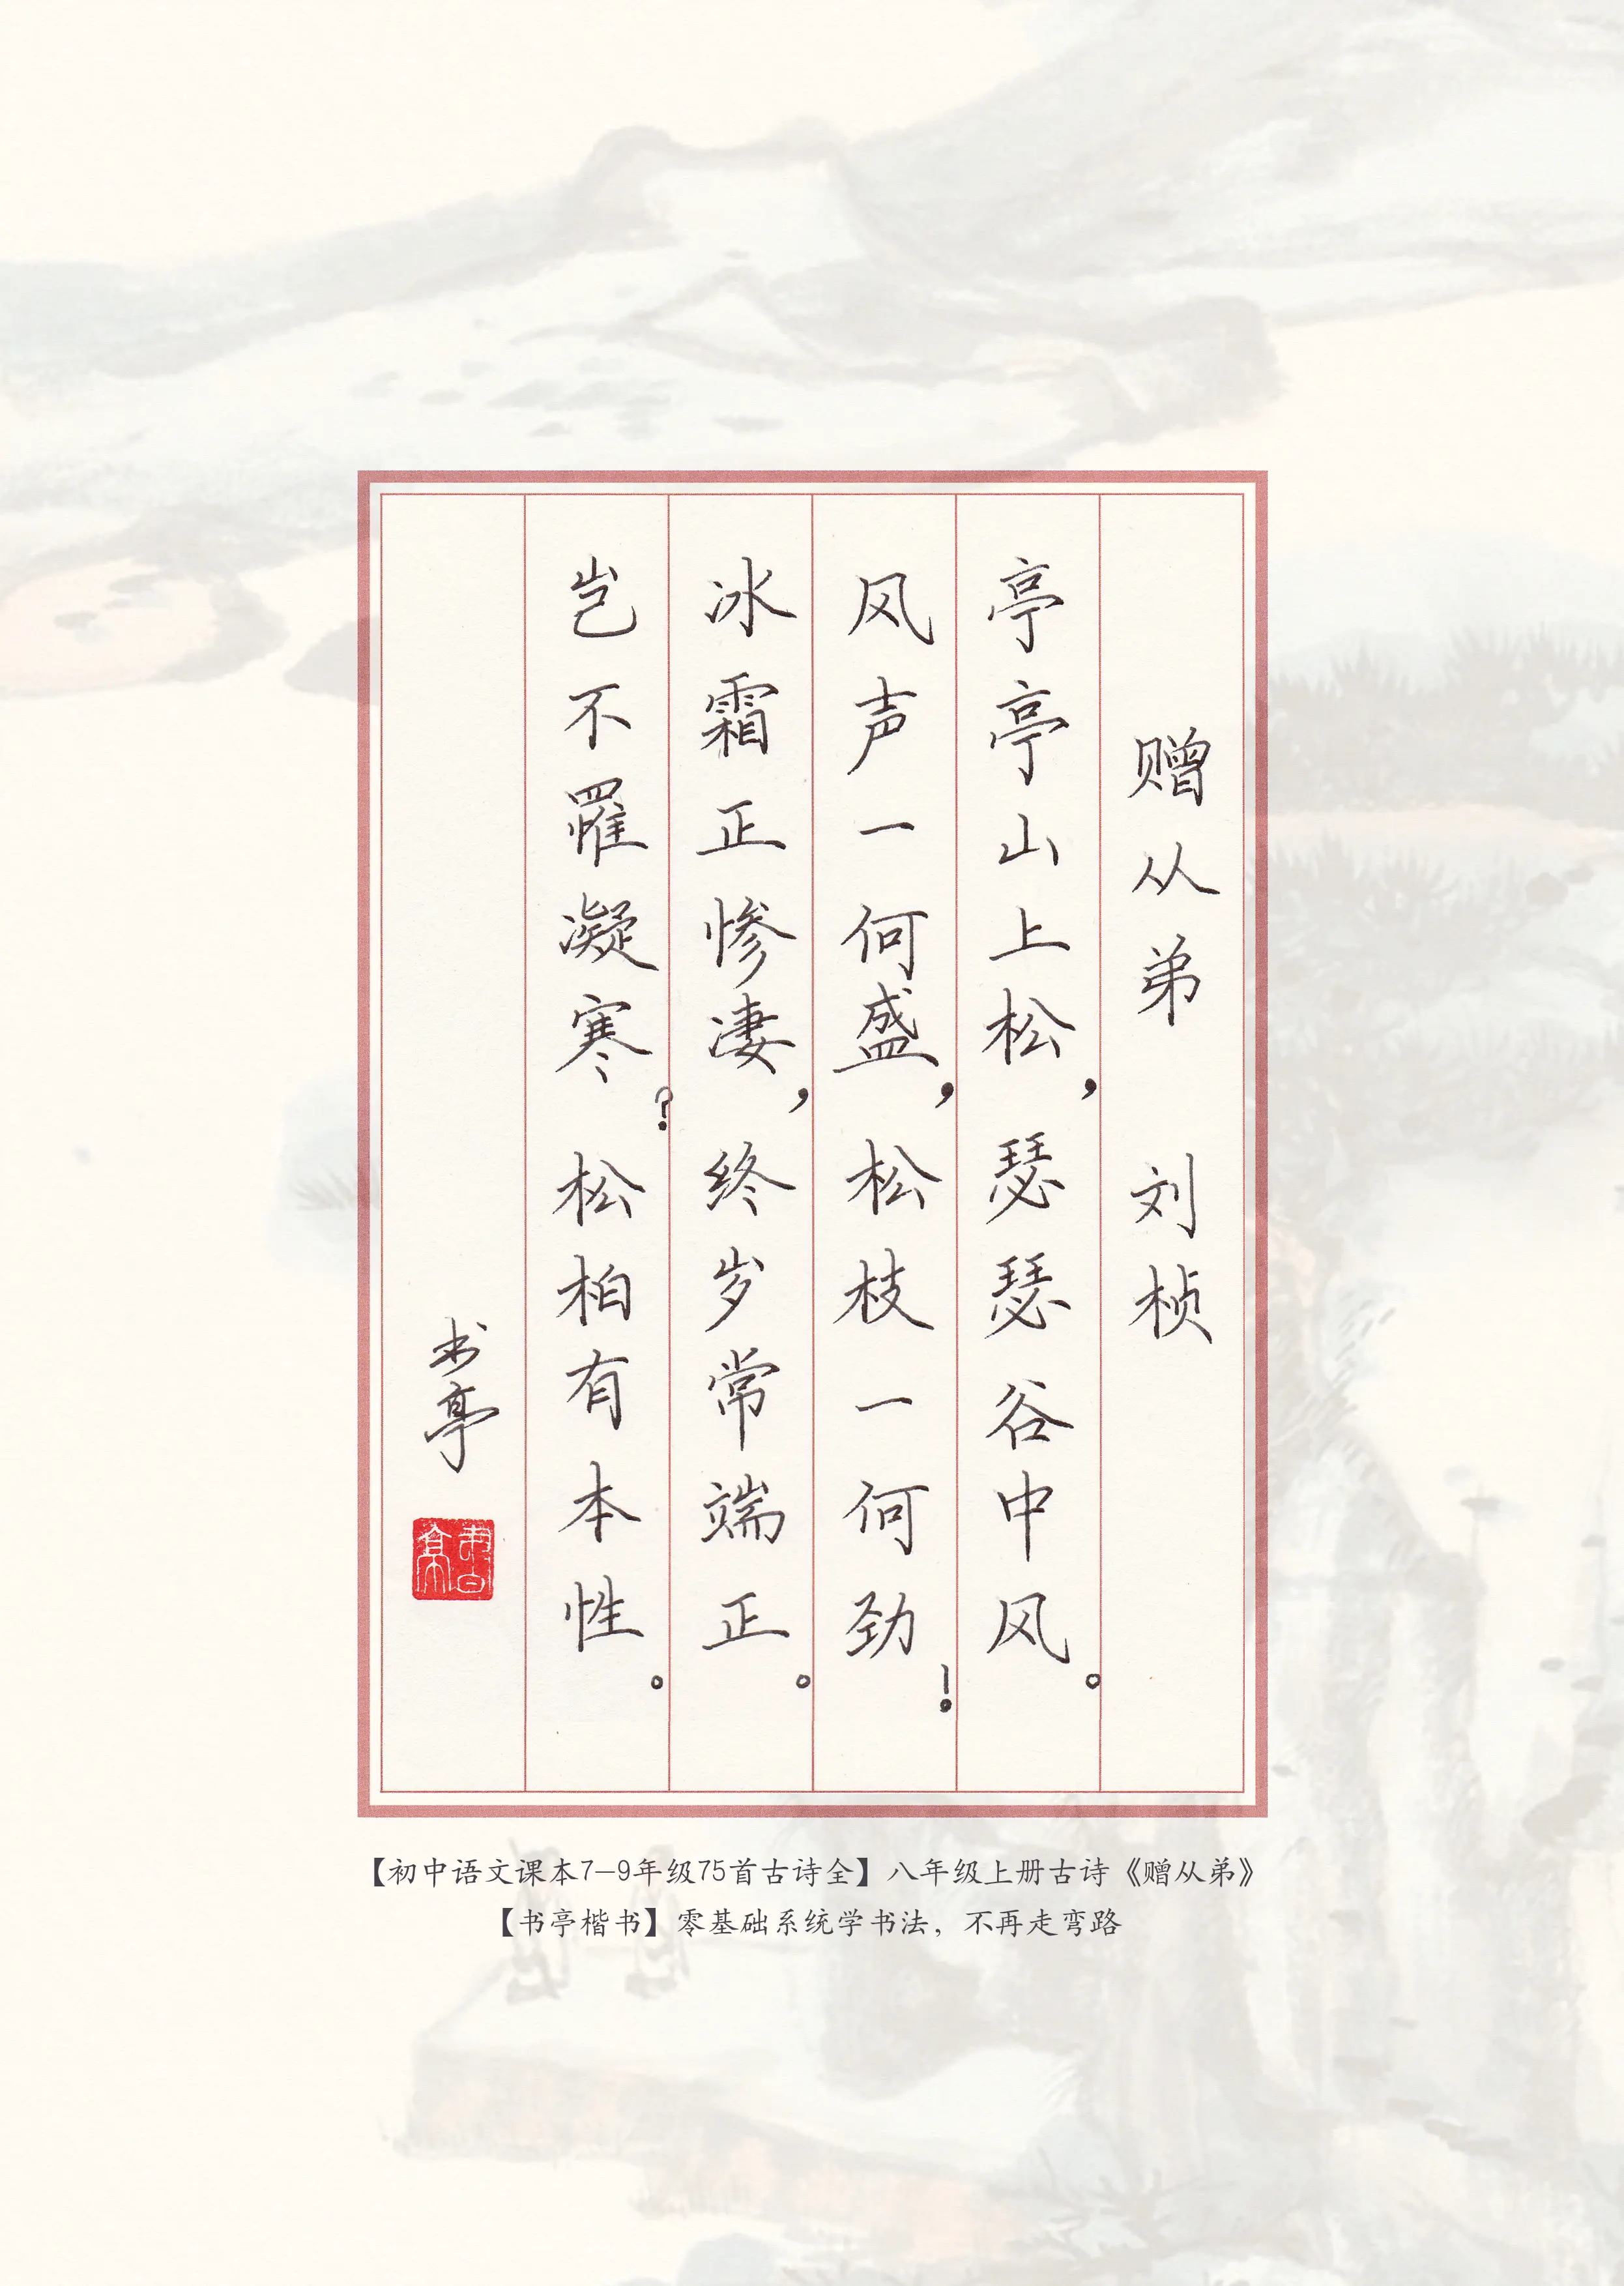 赠从弟 刘桢
亭亭山上松，瑟瑟谷中风。
风声一何盛，松枝一何劲！
冰霜正惨凄，终岁常端正。
岂不罹凝寒？松柏有本性。
书亭
書亭
【初中语文课本7-9年级75首古诗全】八年级上册古诗《赠从弟》
【书亭楷书】零基础系统学书法，不再走弯路